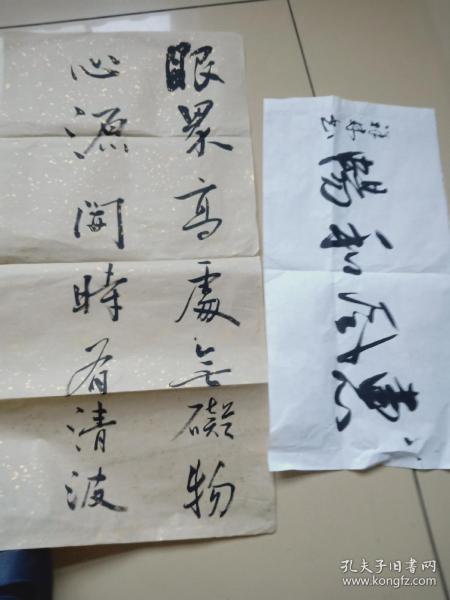 眼界高處無礙物
心源開時有清波
惠風和暢
孔夫子旧书网
www.kongfz.com